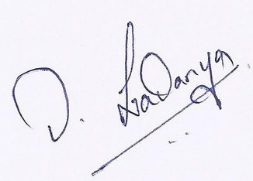 D. Lavanya